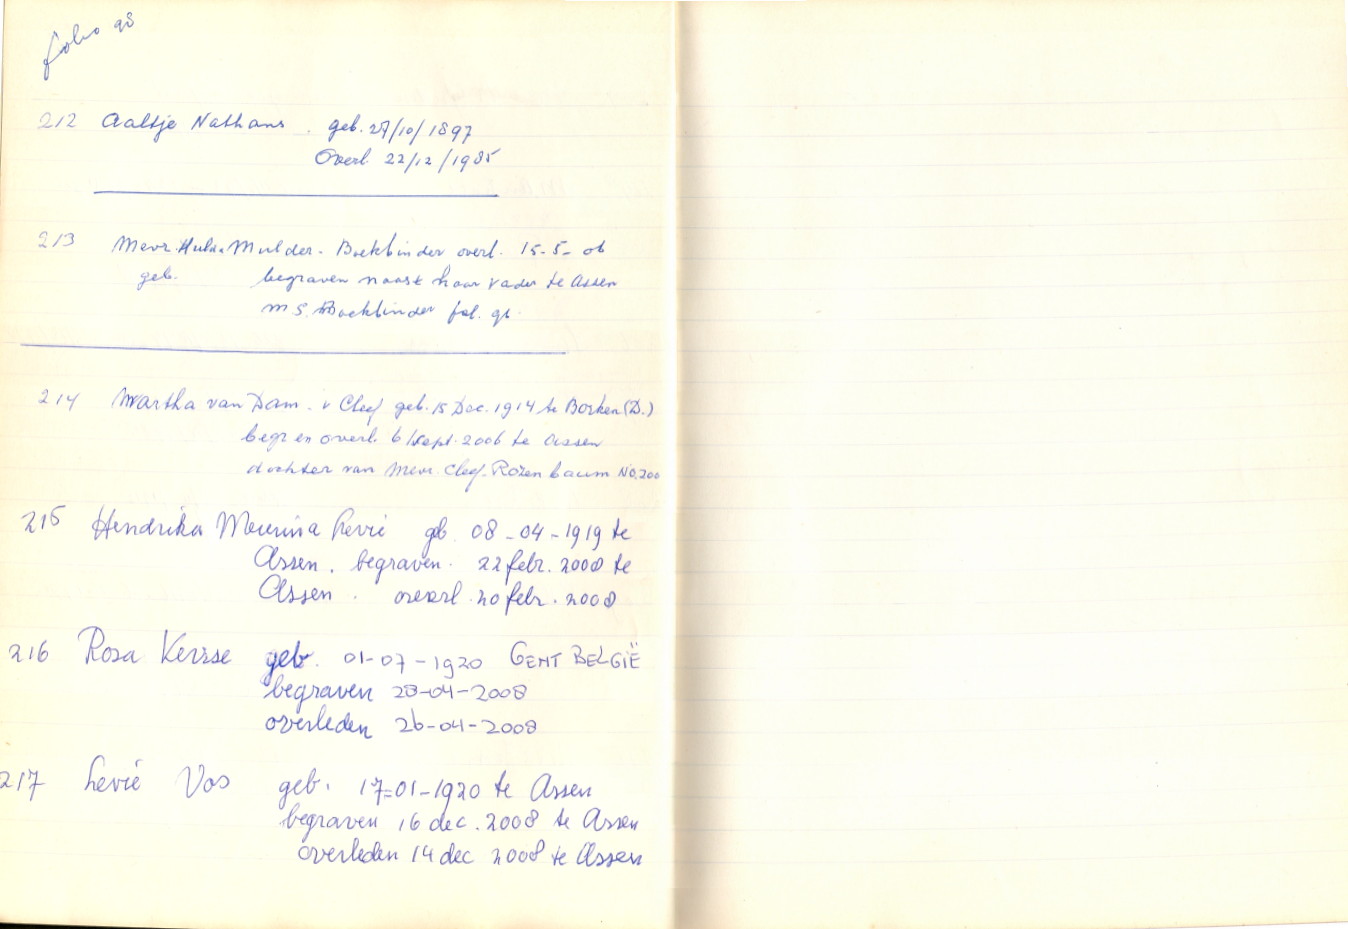 folio 98
212 Aaltje Nathans. geb. 27/10/1897
Overl. 22/12/1985
213 Mevr. Hulda Mulder - Boekbinder overl. 15-5-06
geb. begraven naast haar vader te Assen
M S. Boekbinder fol. 96.
214 Martha van Dam - v Cleef geb. 15 Dec. 1914 te Borken (D.)
begr en overl. 6 Sept. 2006 te Assen
dochter van Mevr. Cleef-Rozenbaum No. 200
215 Hendrika Meurina Levie geb. 08-04-1919 te
Assen. begraven. 22 febr. 2008 te
Assen. overl. 20 febr. 2008
216 Rosa Kersse geb. 01-07-1920 GENT BELGIË
begraven 28-04-2008
overleden 26-04-2008
217 Levie Vos geb. 17=01-1920 te Assen
begraven 16 dec. 2008 te Assen
overleden 14 dec 2008 te Assen